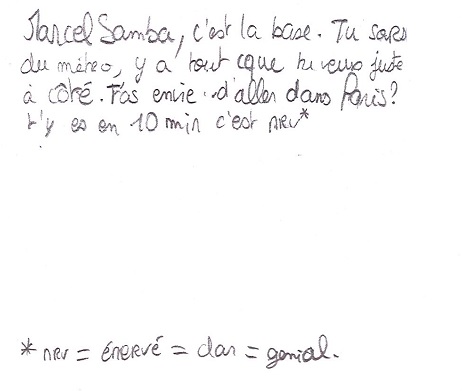 Marcel Samba, c'est la base. Tu sors
du métro, y a tout cque tu veux juste
à côté. T'as envie d'aller dans Paris?
t'y es en 10 min c'est NRV*
* NRV = énervé = dar = génial.